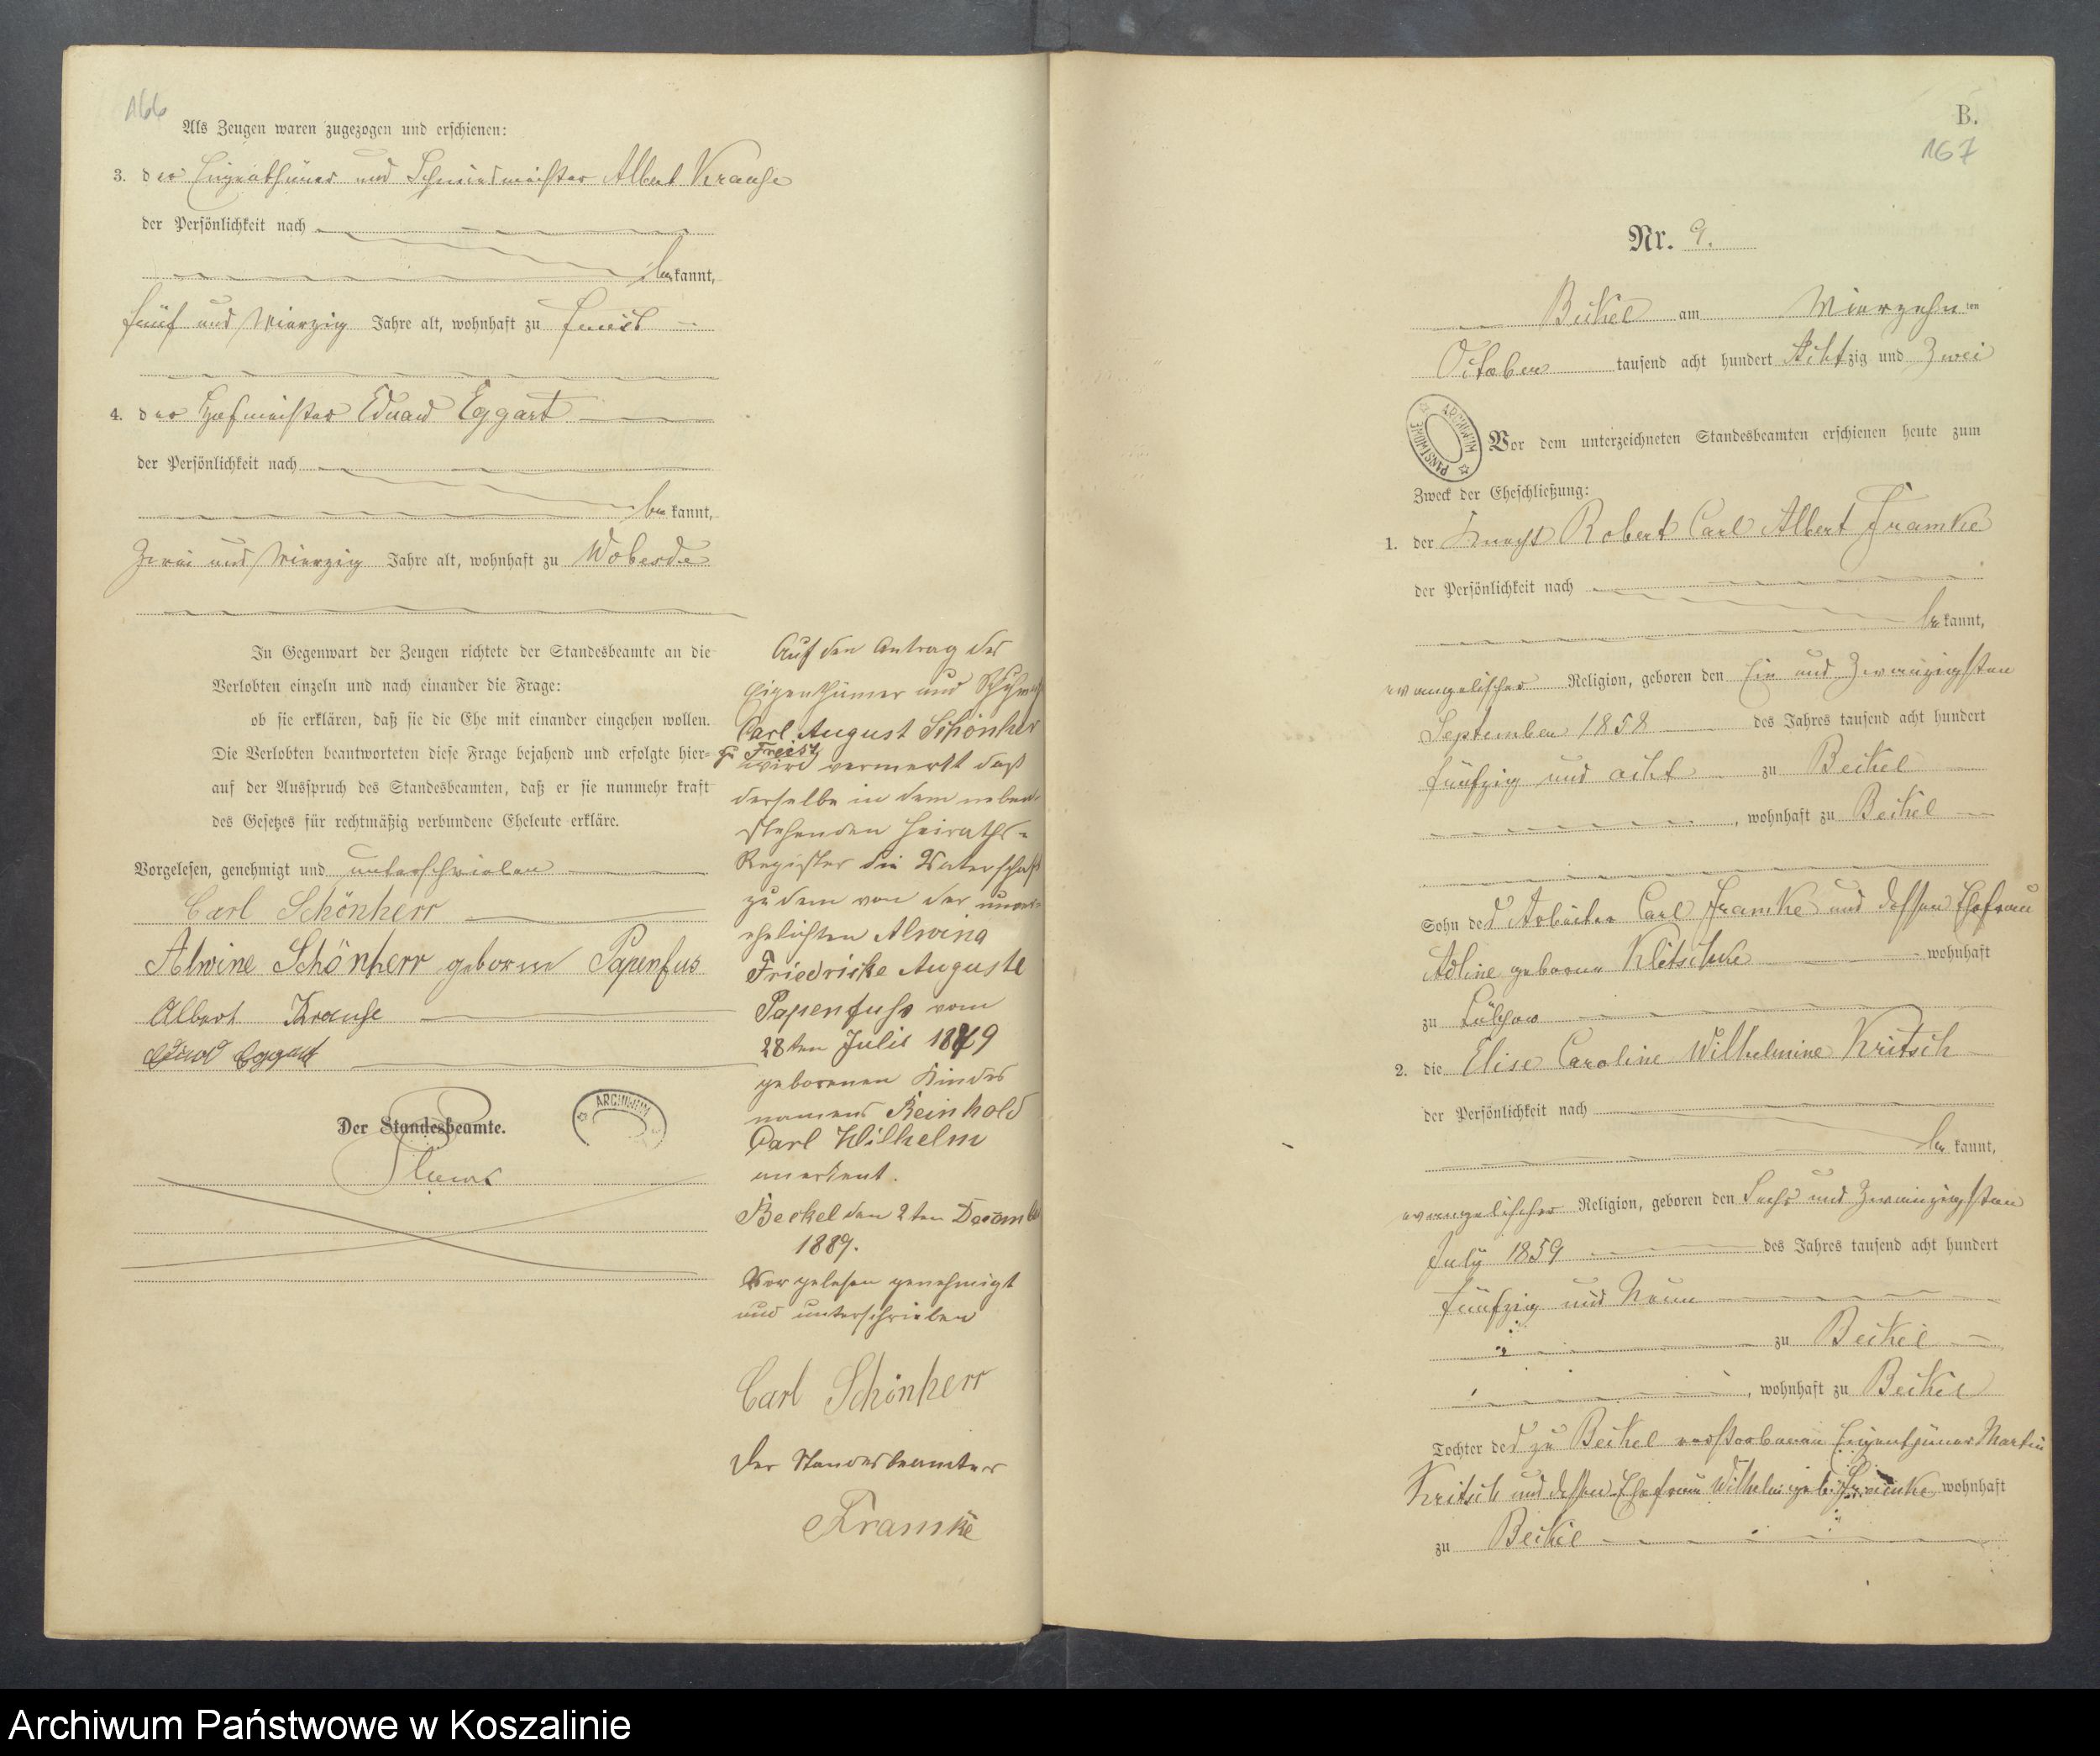 166
Als Zeugen waren zugezogen und erschienen:
3. der Eigenthümer und Schmiedmeister Albert Krause
der Persönlichkeit nach
be kannt,
fünf und vierzig Jahre alt, wohnhaft zu Freist
4. der Hofmeister Eduard Eggart
der Persönlichkeit nach
be kannt,
Zwei und vierzig Jahre alt, wohnhaft zu Woberde
In Gegenwart der Zeugen richtete der Standesbeamte an die
Verlobten einzeln und nach einander die Frage:
ob sie erklären, daß sie die Ehe mit einander eingehen wollen.
Die Verlobten beantworteten diese Frage bejahend und erfolgte hier-
auf der Ausspruch des Standesbeamten, daß er sie nunmehr kraft
des Gesetzes für rechtmäßig verbundene Eheleute erkläre.
Vorgelesen, genehmigt und unterschrieben
Carl Schönherr
Alwine Schönherr geboren Papenfus
Albert Krause
Eduard Eggart
Der Standesbeamte.
ARCHIWUM
Auf den Antrag des
Eigenthümer und
Carl August Schönherr
zu Freist
wird vermerkt daß
derselbe in dem neben-
stehenden Heiraths-
Register die Vaterschaft
zu dem von der unver-
ehelichten Alwina
Friedricke Auguste
Papenfuhs vom
28ten Juli 1879
geborenen Kindes
namens Reinhold
Carl Wilhelm
anerkent.
Beckel den 2ten Decembe
1889.
Vorgelesen genehmigt
und unterschrieben
Carl Schönherr
Der Standesbeamter
Framke
B.
167
Nr. 9.
Beckel am Vierzehn ten
October tausend acht hundert Achtzig und Zwei
ARCHIWUM PAŃSTWOWE
Vor dem unterzeichneten Standesbeamten erschienen heute zum
Zweck der Eheschließung:
1. der Knecht Robert Carl Albert Framke
der Persönlichkeit nach
be kannt,
evangelischer Religion, geboren den Ein und Zwanzigsten
September 1858 des Jahres tausend acht hundert
fünfzig und acht zu Beckel
, wohnhaft zu Beckel
Sohn des Arbeiter Carl Framke und dessen Ehefrau
Adline geborne Klitschke wohnhaft
zu Lübzow
2. die Elise Caroline Wilhelmine Kritsch
der Persönlichkeit nach
be kannt,
evangelischer Religion, geboren den Sechs und Zwanzigsten
July 1859 des Jahres tausend acht hundert
fünfzig und Neun
zu Beckel
, wohnhaft zu Beckel
Tochter des zu Beckel verstorbenen Eigenthümer Martin
Kritsch und dessen Ehefrau Wilhelmine geb. Framke wohnhaft
zu Beckel
Archiwum Państwowe w Koszalinie